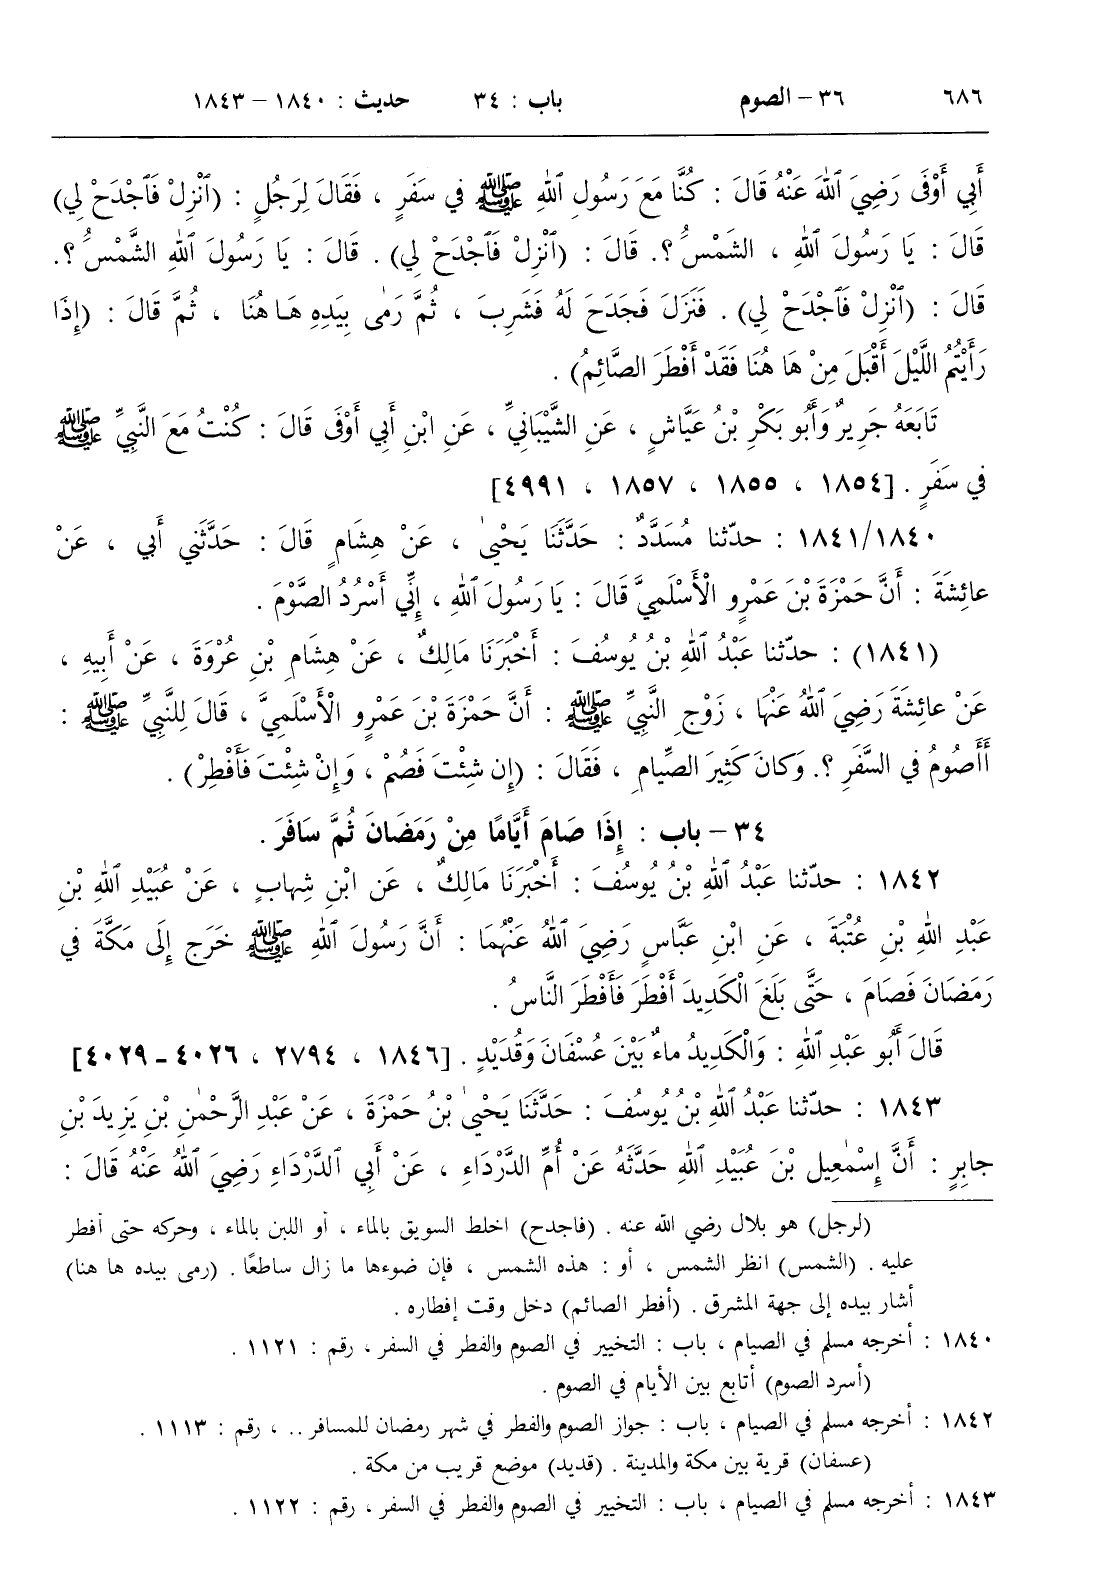 ٦٨٦ ٣٦ – الصوم باب : ٣٤ حديث : ١٨٤٠ – ١٨٤٣
أَبِي أَوْفَى رَضِيَ ٱللهُ عَنْهُ قَالَ : كُنَّا مَعَ رَسُولِ ٱللهِ ﷺ في سَفَرٍ ، فَقَالَ لِرَجُلٍ : (ٱنْزِلْ فَٱجْدَحْ لِي)
قَالَ : يَا رَسُولَ ٱللهِ ، الشَمْسُ؟. قَالَ : (ٱنْزِلْ فَٱجْدَحْ لِي) . قَالَ : يَا رَسُولَ ٱللهِ الشَّمْسُ؟.
قَالَ : (ٱنْزِلْ فَٱجْدَحْ لِي) . فَنَزَلَ فَجَدَحَ لَهُ فَشَرِبَ ، ثُمَّ رَمَىٰ بِيَدِهِ هَا هُنَا ، ثُمَّ قَالَ : (إِذَا
رَأَيْتُمُ اللَّيْلَ أَقْبَلَ مِنْ هَا هُنَا فَقَدْ أَفْطَرَ الصَّائِمُ) .
تَابَعَهُ جَرِيرٌ وَأَبُو بَكْرِ بْنُ عَيَّاشٍ ، عَنِ الشَّيْبَانِيِّ ، عَنِ ابْنِ أَبِي أَوْفَى قَالَ : كُنْتُ مَعَ النَّبِيِّ ﷺ
في سَفَرٍ . [١٨٥٤ ، ١٨٥٥ ، ١٨٥٧ ، ٤٩٩١]
١٨٤١/١٨٤٠ : حدّثنا مُسَدَّدٌ : حَدَّثَنَا يَحْيَىٰ ، عَنْ هِشَامٍ قَالَ : حَدَّثَنِي أَبِي ، عَنْ
عائِشَةَ : أَنَّ حَمْزَةَ بْنَ عَمْرٍو الْأَسْلَمِيَّ قَالَ : يَا رَسُولَ ٱللهِ ، إِنِّي أَسْرُدُ الصَّوْمَ .
(١٨٤١) : حدّثنا عَبْدُ ٱللهِ بْنُ يُوسُفَ : أَخْبَرَنَا مَالِكٌ ، عَنْ هِشَامِ بْنِ عُرْوَةَ ، عَنْ أَبِيهِ ،
عَنْ عائِشَةَ رَضِيَ ٱللهُ عَنْهَا ، زَوْجِ النَّبِيِّ ﷺ : أَنَّ حَمْزَةَ بْنَ عَمْرٍو الْأَسْلَمِيَّ ، قَالَ لِلنَّبِيِّ ﷺ :
أَأَصُومُ فِي السَّفَرِ ؟. وَكانَ كَثِيرَ الصِّيَامِ ، فَقَالَ : (إِن شِئْتَ فَصُمْ ، وَإِنْ شِئْتَ فَأَفْطِرْ) .
٣٤ – باب : إِذَا صَامَ أَيَّامًا مِنْ رَمَضَانَ ثُمَّ سَافَرَ .
١٨٤٢ : حدّثنا عَبْدُ ٱللهِ بْنُ يُوسُفَ : أَخْبَرَنَا مَالِكٌ ، عَن ابْنِ شِهَابٍ ، عَنْ عُبَيْدِ ٱللهِ بْنِ
عَبْدِ اللهِ بْنِ عُتْبَةَ ، عَنِ ابْنِ عَبَّاسٍ رَضِيَ ٱللهُ عَنْهُمَا : أَنَّ رَسُولَ ٱللهِ ﷺ خَرَج إِلَى مَكَّةَ في
رَمَضَانَ فَصَامَ ، حَتَّى بَلَغَ الْكَدِيدَ أَفْطَرَ فَأَفْطَرَ النَّاسُ .
قَالَ أَبُو عَبْدِ ٱللهِ : وَالْكَدِيدُ ماءٌ بَيْنَ عُسْفَانَ وَقُدَيْدٍ . [١٨٤٦ ، ٢٧٩٤ ، ٤٠٢٦ ـ ٤٠٢٩]
١٨٤٣ : حدّثنا عَبْدُ ٱللهِ بْنُ يُوسُفَ : حَدَّثَنَا يَحْيَىٰ بْنُ حَمْزَةَ ، عَنْ عَبْدِ الرَّحْمٰنِ بْنِ يَزِيدَ بْنِ
جابِرٍ : أَنَّ إِسْمٰعِيلَ بْنَ عُبَيْدِ ٱللهِ حَدَّثَهُ عَنْ أُمِّ الدَّرْدَاءِ ، عَنْ أَبِي ٱلدَّرْدَاءِ رَضِيَ ٱللهُ عَنْهُ قَالَ :
(لرجل) هو بلال رضي الله عنه . (فاجدح) اخلط السويق بالماء ، أو اللبن بالماء ، وحركه حتى أفطر
عليه . (الشمس) انظر الشمس ، أو : هذه الشمس ، فإن ضوءها ما زال ساطعًا . (رمى بيده ها هنا)
أشار بيده إلى جهة المشرق . (أفطر الصائم) دخل وقت إفطاره .
١٨٤٠ : أخرجه مسلم في الصيام ، باب : التخيير في الصوم والفطر في السفر ، رقم : ١١٢١ .
(أسرد الصوم) أتابع بين الأيام في الصوم .
١٨٤٢ : أخرجه مسلم في الصيام ، باب : جواز الصوم والفطر في شهر رمضان للمسافر .. ، رقم : ١١١٣ .
(عسفان) قرية بين مكة والمدينة . (قديد) موضع قريب من مكة .
١٨٤٣ : أخرجه مسلم في الصيام ، باب : التخيير في الصوم والفطر في السفر ، رقم : ١١٢٢ .